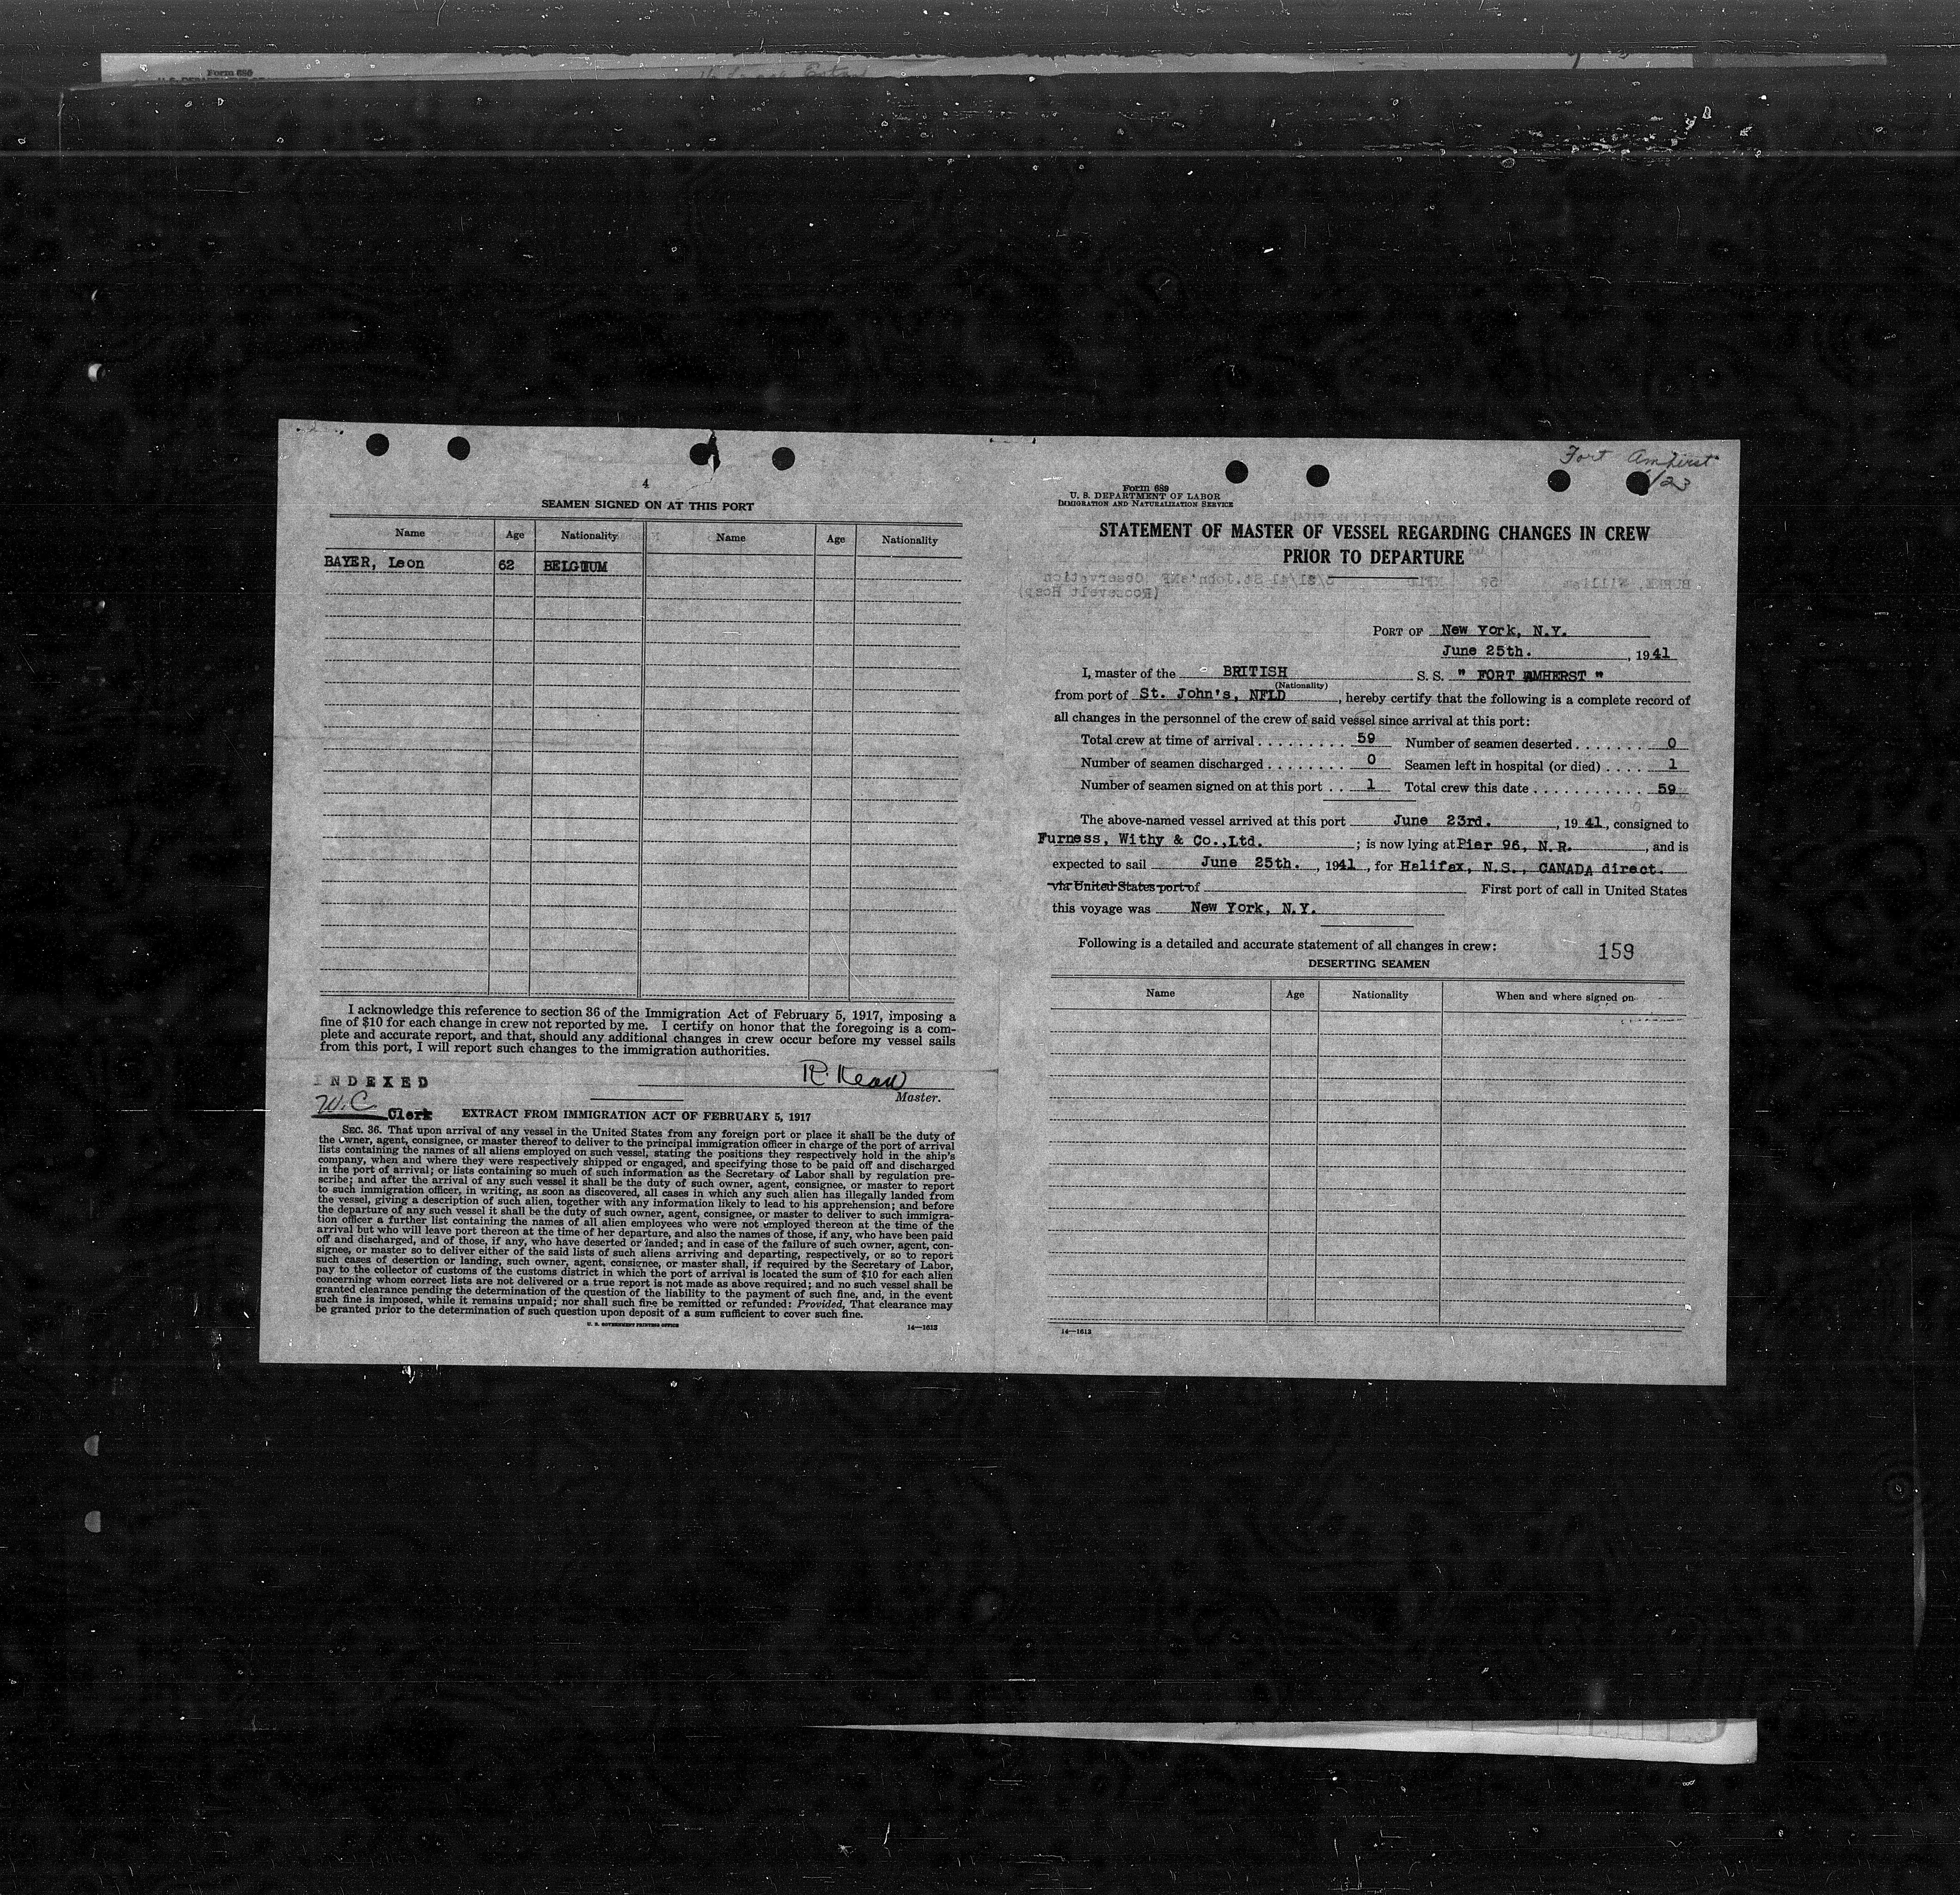 Form 689
4
SEAMEN SIGNED ON AT THIS PORT
Name Age Nationality Name Age Nationality
BAYER, Leon 62 BELGIUM
I acknowledge this reference to section 36 of the Immigration Act of February 5, 1917, imposing a
fine of $10 for each change in crew not reported by me. I certify on honor that the foregoing is a com-
plete and accurate report, and that, should any additional changes in crew occur before my vessel sails
from this port, I will report such changes to the immigration authorities.
INDEXED
R. Kean
Master.
W.C. Clerk
EXTRACT FROM IMMIGRATION ACT OF FEBRUARY 5, 1917
SEC. 36. That upon arrival of any vessel in the United States from any foreign port or place it shall be the duty of
the owner, agent, consignee, or master thereof to deliver to the principal immigration officer in charge of the port of arrival
lists containing the names of all aliens employed on such vessel, stating the positions they respectively hold in the ship's
company, when and where they were respectively shipped or engaged, and specifying those to be paid off and discharged
in the port of arrival; or lists containing so much of such information as the Secretary of Labor shall by regulation pre-
scribe; and after the arrival of any such vessel it shall be the duty of such owner, agent, consignee, or master to report
to such immigration officer, in writing, as soon as discovered, all cases in which any such alien has illegally landed from
the vessel, giving a description of such alien, together with any information likely to lead to his apprehension; and before
the departure of any such vessel it shall be the duty of such owner, agent, consignee, or master to deliver to such immigra-
tion officer a further list containing the names of all alien employees who were not employed thereon at the time of the
arrival but who will leave port thereon at the time of her departure, and also the names of those, if any, who have been paid
off and discharged, and of those, if any, who have deserted or landed; and in case of the failure of such owner, agent, con-
signee, or master so to deliver either of the said lists of such aliens arriving and departing, respectively, or so to report
such cases of desertion or landing, such owner, agent, consignee, or master shall, if required by the Secretary of Labor,
pay to the collector of customs of the customs district in which the port of arrival is located the sum of $10 for each alien
concerning whom correct lists are not delivered or a true report is not made as above required; and no such vessel shall be
granted clearance pending the determination of the question of the liability to the payment of such fine, and, in the event
such fine is imposed, while it remains unpaid; nor shall such fine be remitted or refunded: Provided, That clearance may
be granted prior to the determination of such question upon deposit of a sum sufficient to cover such fine.
U. S. GOVERNMENT PRINTING OFFICE 14—1613
Fort Amherst
6/23
Form 689
U. S. DEPARTMENT OF LABOR
IMMIGRATION AND NATURALIZATION SERVICE
STATEMENT OF MASTER OF VESSEL REGARDING CHANGES IN CREW
PRIOR TO DEPARTURE
BURKE, William 59 NFLD 5/31/41 St.John'sNF Observation
(Roosevelt Hosp)
PORT OF New York, N.Y.
June 25th. , 1941
I, master of the BRITISH S. S. " FORT AMHERST "
(Nationality)
from port of St. John's, NFLD , hereby certify that the following is a complete record of
all changes in the personnel of the crew of said vessel since arrival at this port:
Total crew at time of arrival . . . . . . . . . 59 Number of seamen deserted . . . . . . . 0
Number of seamen discharged . . . . . . . . 0 Seamen left in hospital (or died) . . . . 1
Number of seamen signed on at this port . . 1 Total crew this date . . . . . . . . . . . 59
The above-named vessel arrived at this port June 23rd. , 1941, consigned to
Furness, Withy & Co.,Ltd. ; is now lying at Pier 96, N.R. , and is
expected to sail June 25th. , 1941 , for Halifax, N.S., CANADA direct.
via United States port of First port of call in United States
this voyage was New York, N.Y.
Following is a detailed and accurate statement of all changes in crew:
159
DESERTING SEAMEN
Name Age Nationality When and where signed on
14—1613